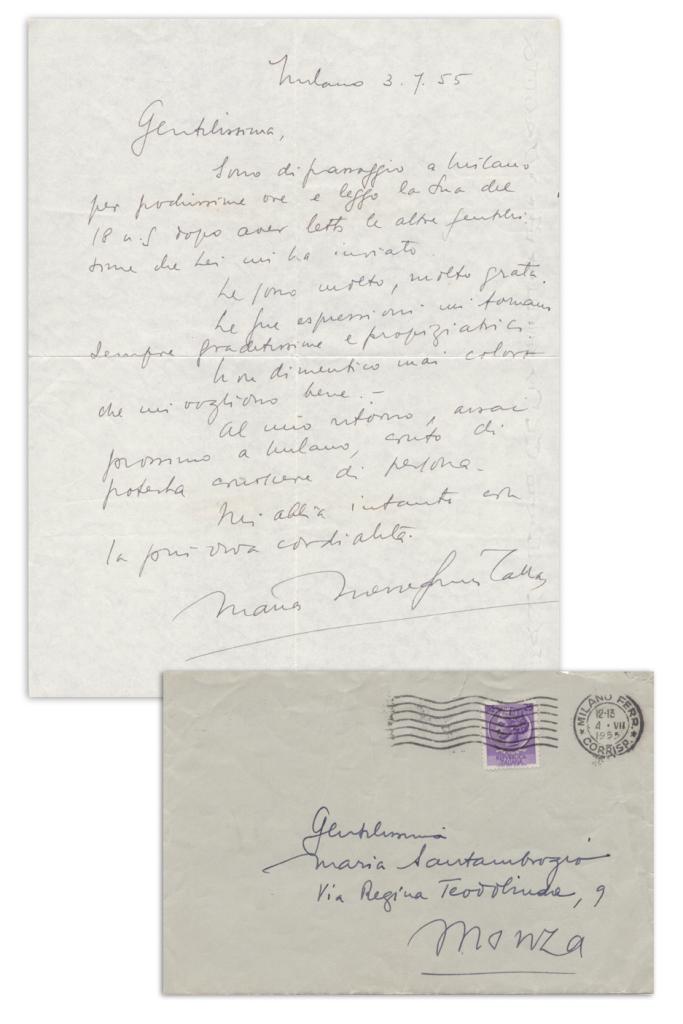 Milano 3.7.55
Gentilissima,
Sono di passaggio a Milano
per pochissime ore e leggo la Sua del
18 u.s dopo aver letto le altre gentilis
sime che Lei mi ha inviato.
Le sono molto, molto grata.
Le sue espressioni mi tornano
sempre graditissime e propiziatrici.
Non dimentico mai coloro
che mi vogliono bene. –
Al mio ritorno, assai
prossimo a Milano, conto di
poterla conoscere di persona.
Mi abbia intanto con
la più viva cordialità.
Maria Meneghini Callas
MILANO FERR.
12-13
4 · VII
1955
CORRISP.
REPVBBLICA
ITALIANA
Gentilissima
Maria Santambrogio
Via Regina Teodolinda, 9
Monza